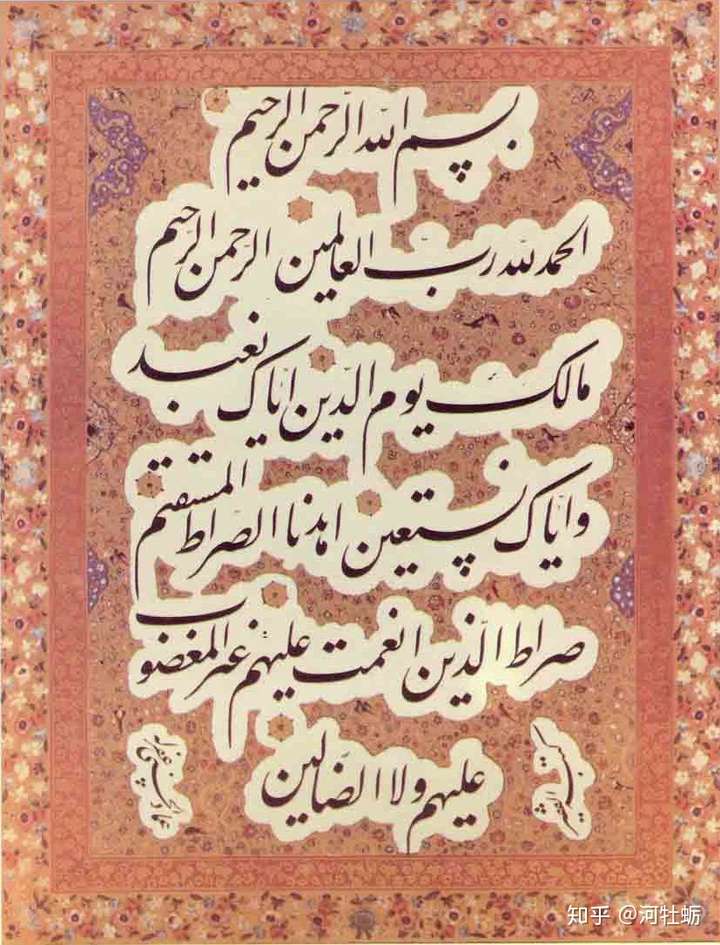 بسم الله الرحمن الرحیم
الحمد لله رب العالمین الرحمن الرحیم
مالک یوم الدین ایاک نعبد
وایاک نستعین اهدنا الصراط المستقیم
صراط الذین انعمت علیهم غیر المغضوب
علیهم ولا الضالین
عماد الحسنی غفر له
知乎 @河牡蛎